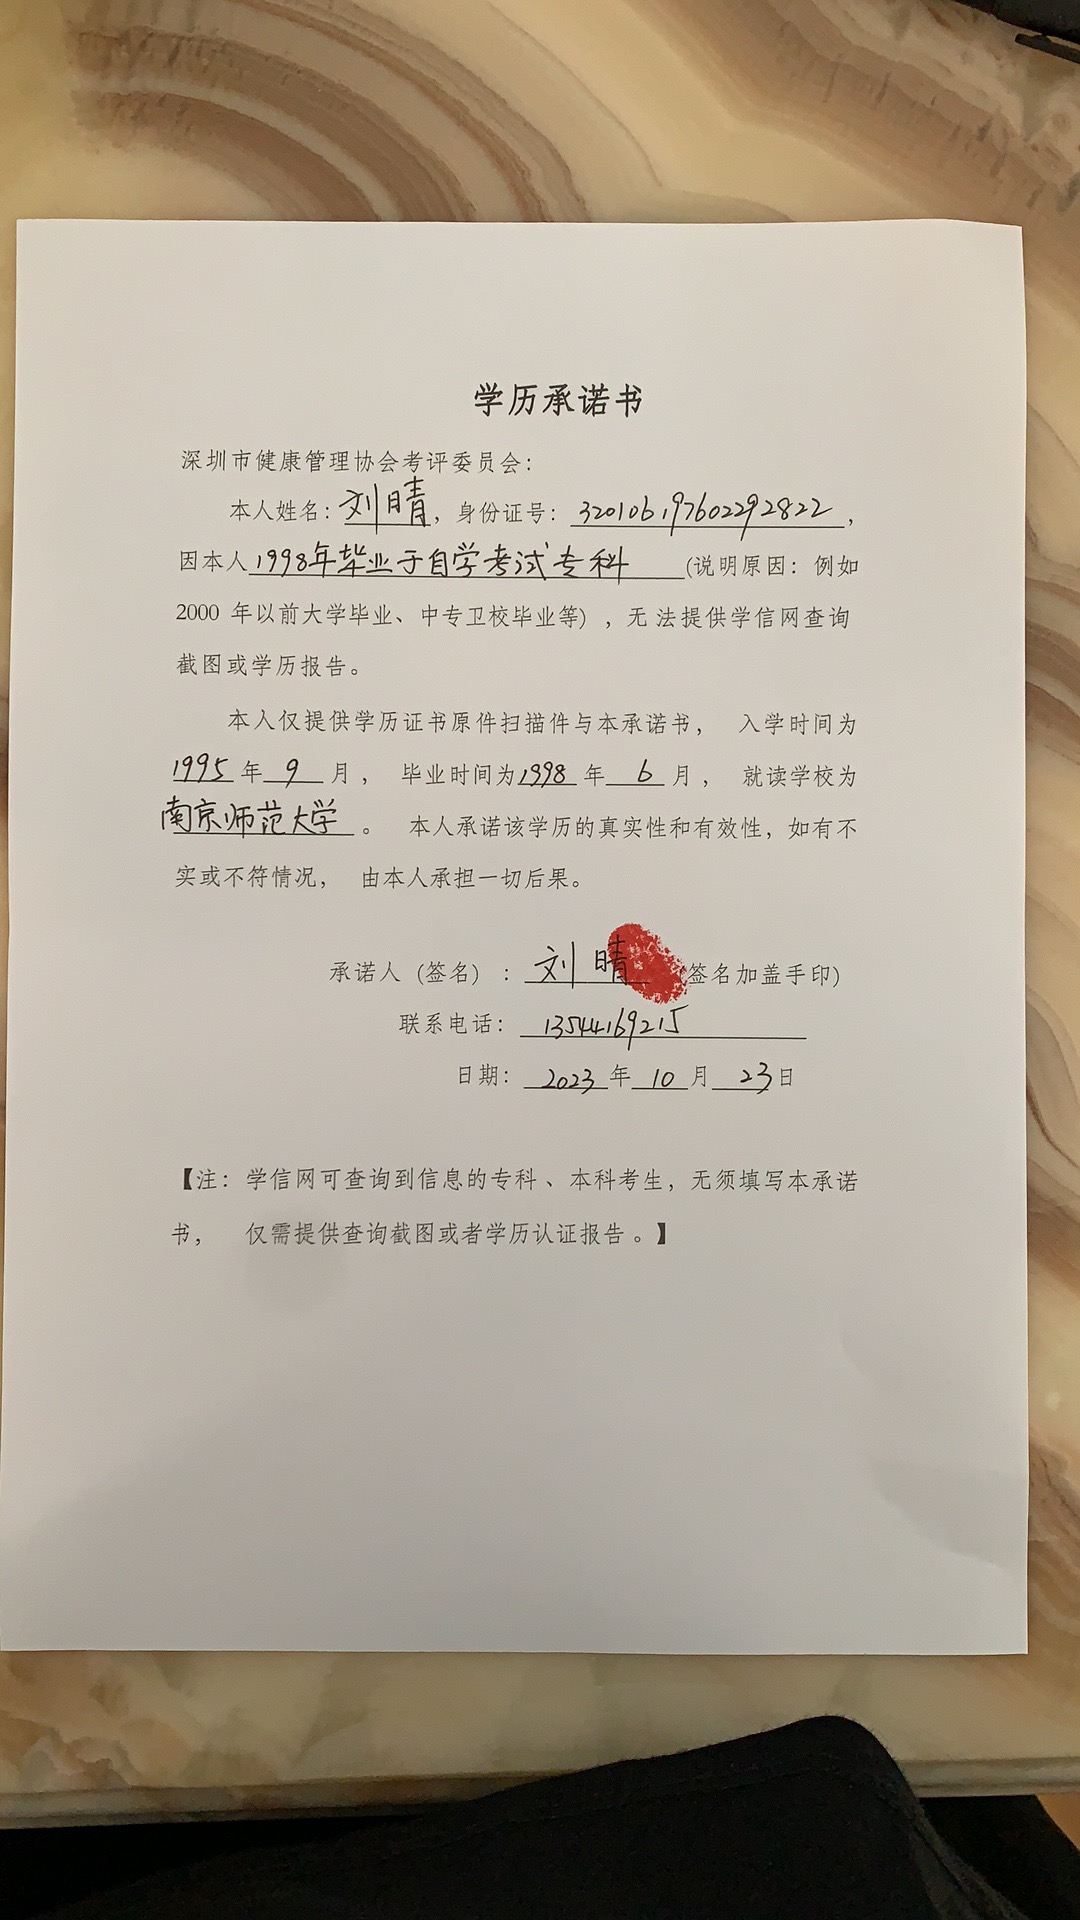 学历承诺书
深圳市健康管理协会考评委员会：
本人姓名：刘晴，身份证号：320106197602292822，
因本人1998年毕业于自学考试专科(说明原因：例如
2000 年以前大学毕业、中专卫校毕业等)，无法提供学信网查询
截图或学历报告。
本人仅提供学历证书原件扫描件与本承诺书， 入学时间为
1995年9月， 毕业时间为1998年6月， 就读学校为
南京师范大学。 本人承诺该学历的真实性和有效性，如有不
实或不符情况， 由本人承担一切后果。
承诺人（签名）：刘晴（签名加盖手印）
联系电话：13544169215
日期：2023年10月23日
【注：学信网可查询到信息的专科、本科考生，无须填写本承诺
书， 仅需提供查询截图或者学历认证报告。】